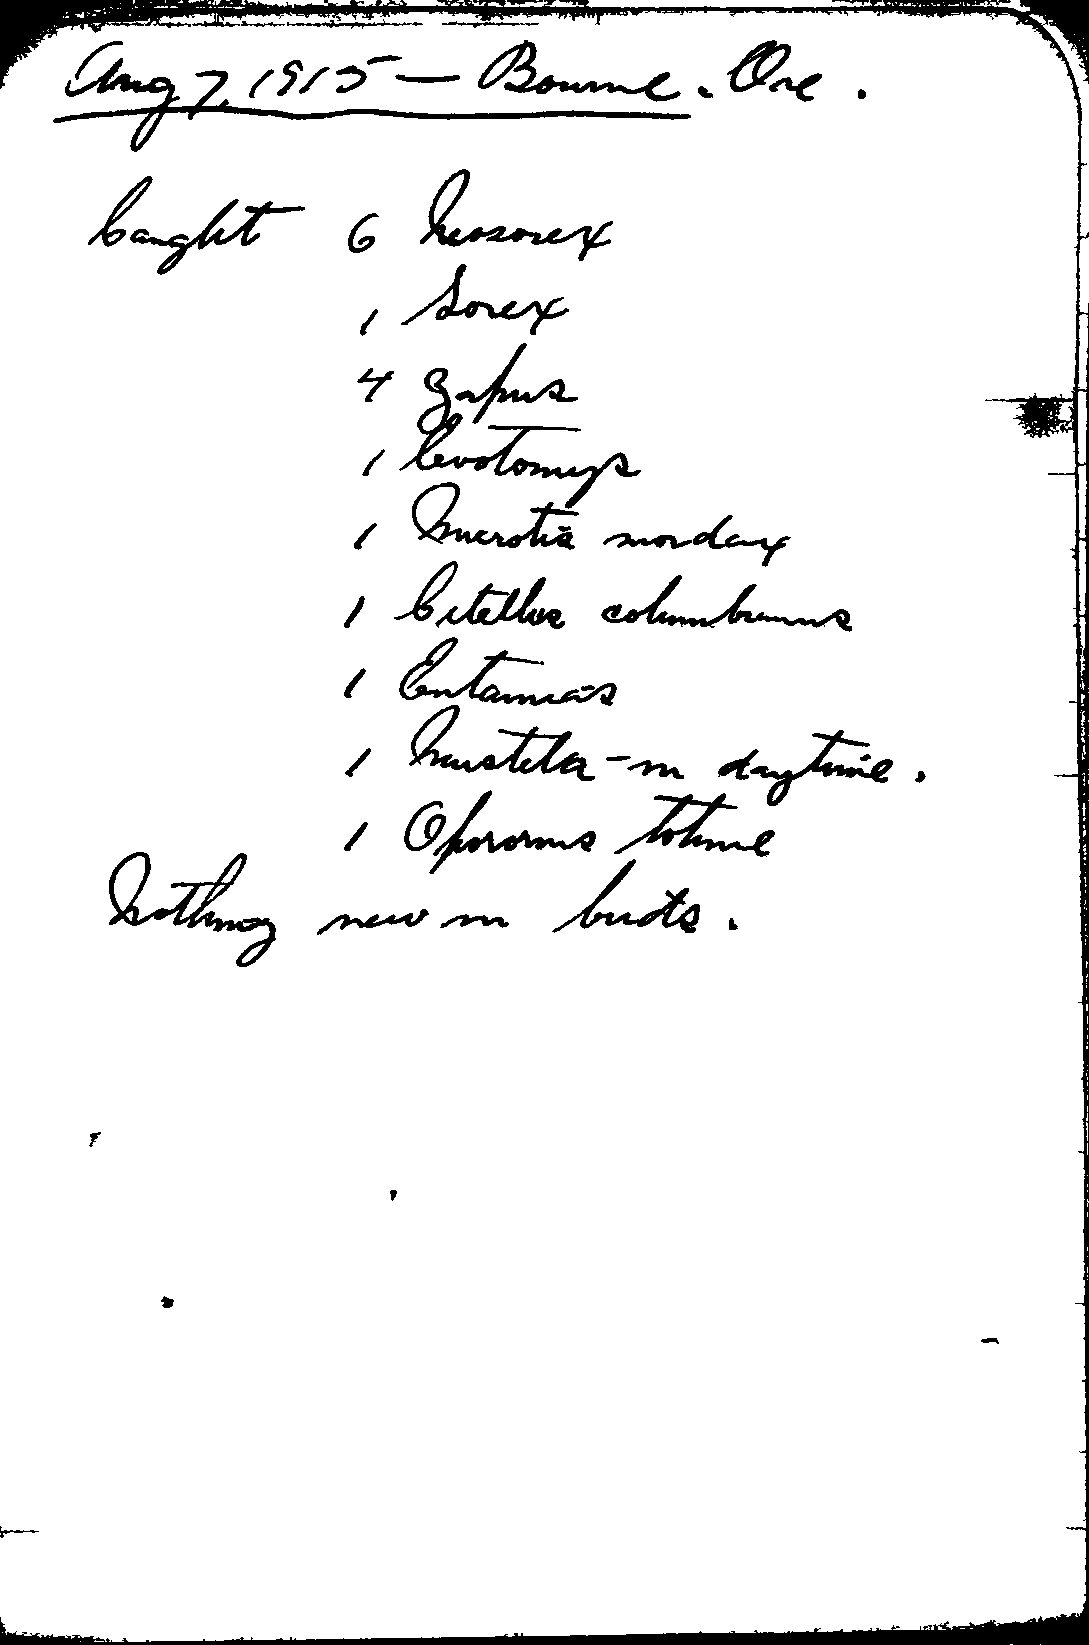 Aug 7, 1915 — Bourne. Ore.
Caught 6 Neosorex
1 Sorex
4 Zapus
1 Evotomys
1 Microtus mordax
1 Citellus columbianus
1 Eutamias
1 Mustela - in daytime.
1 Oporornis tolmie
Nothing new in birds.